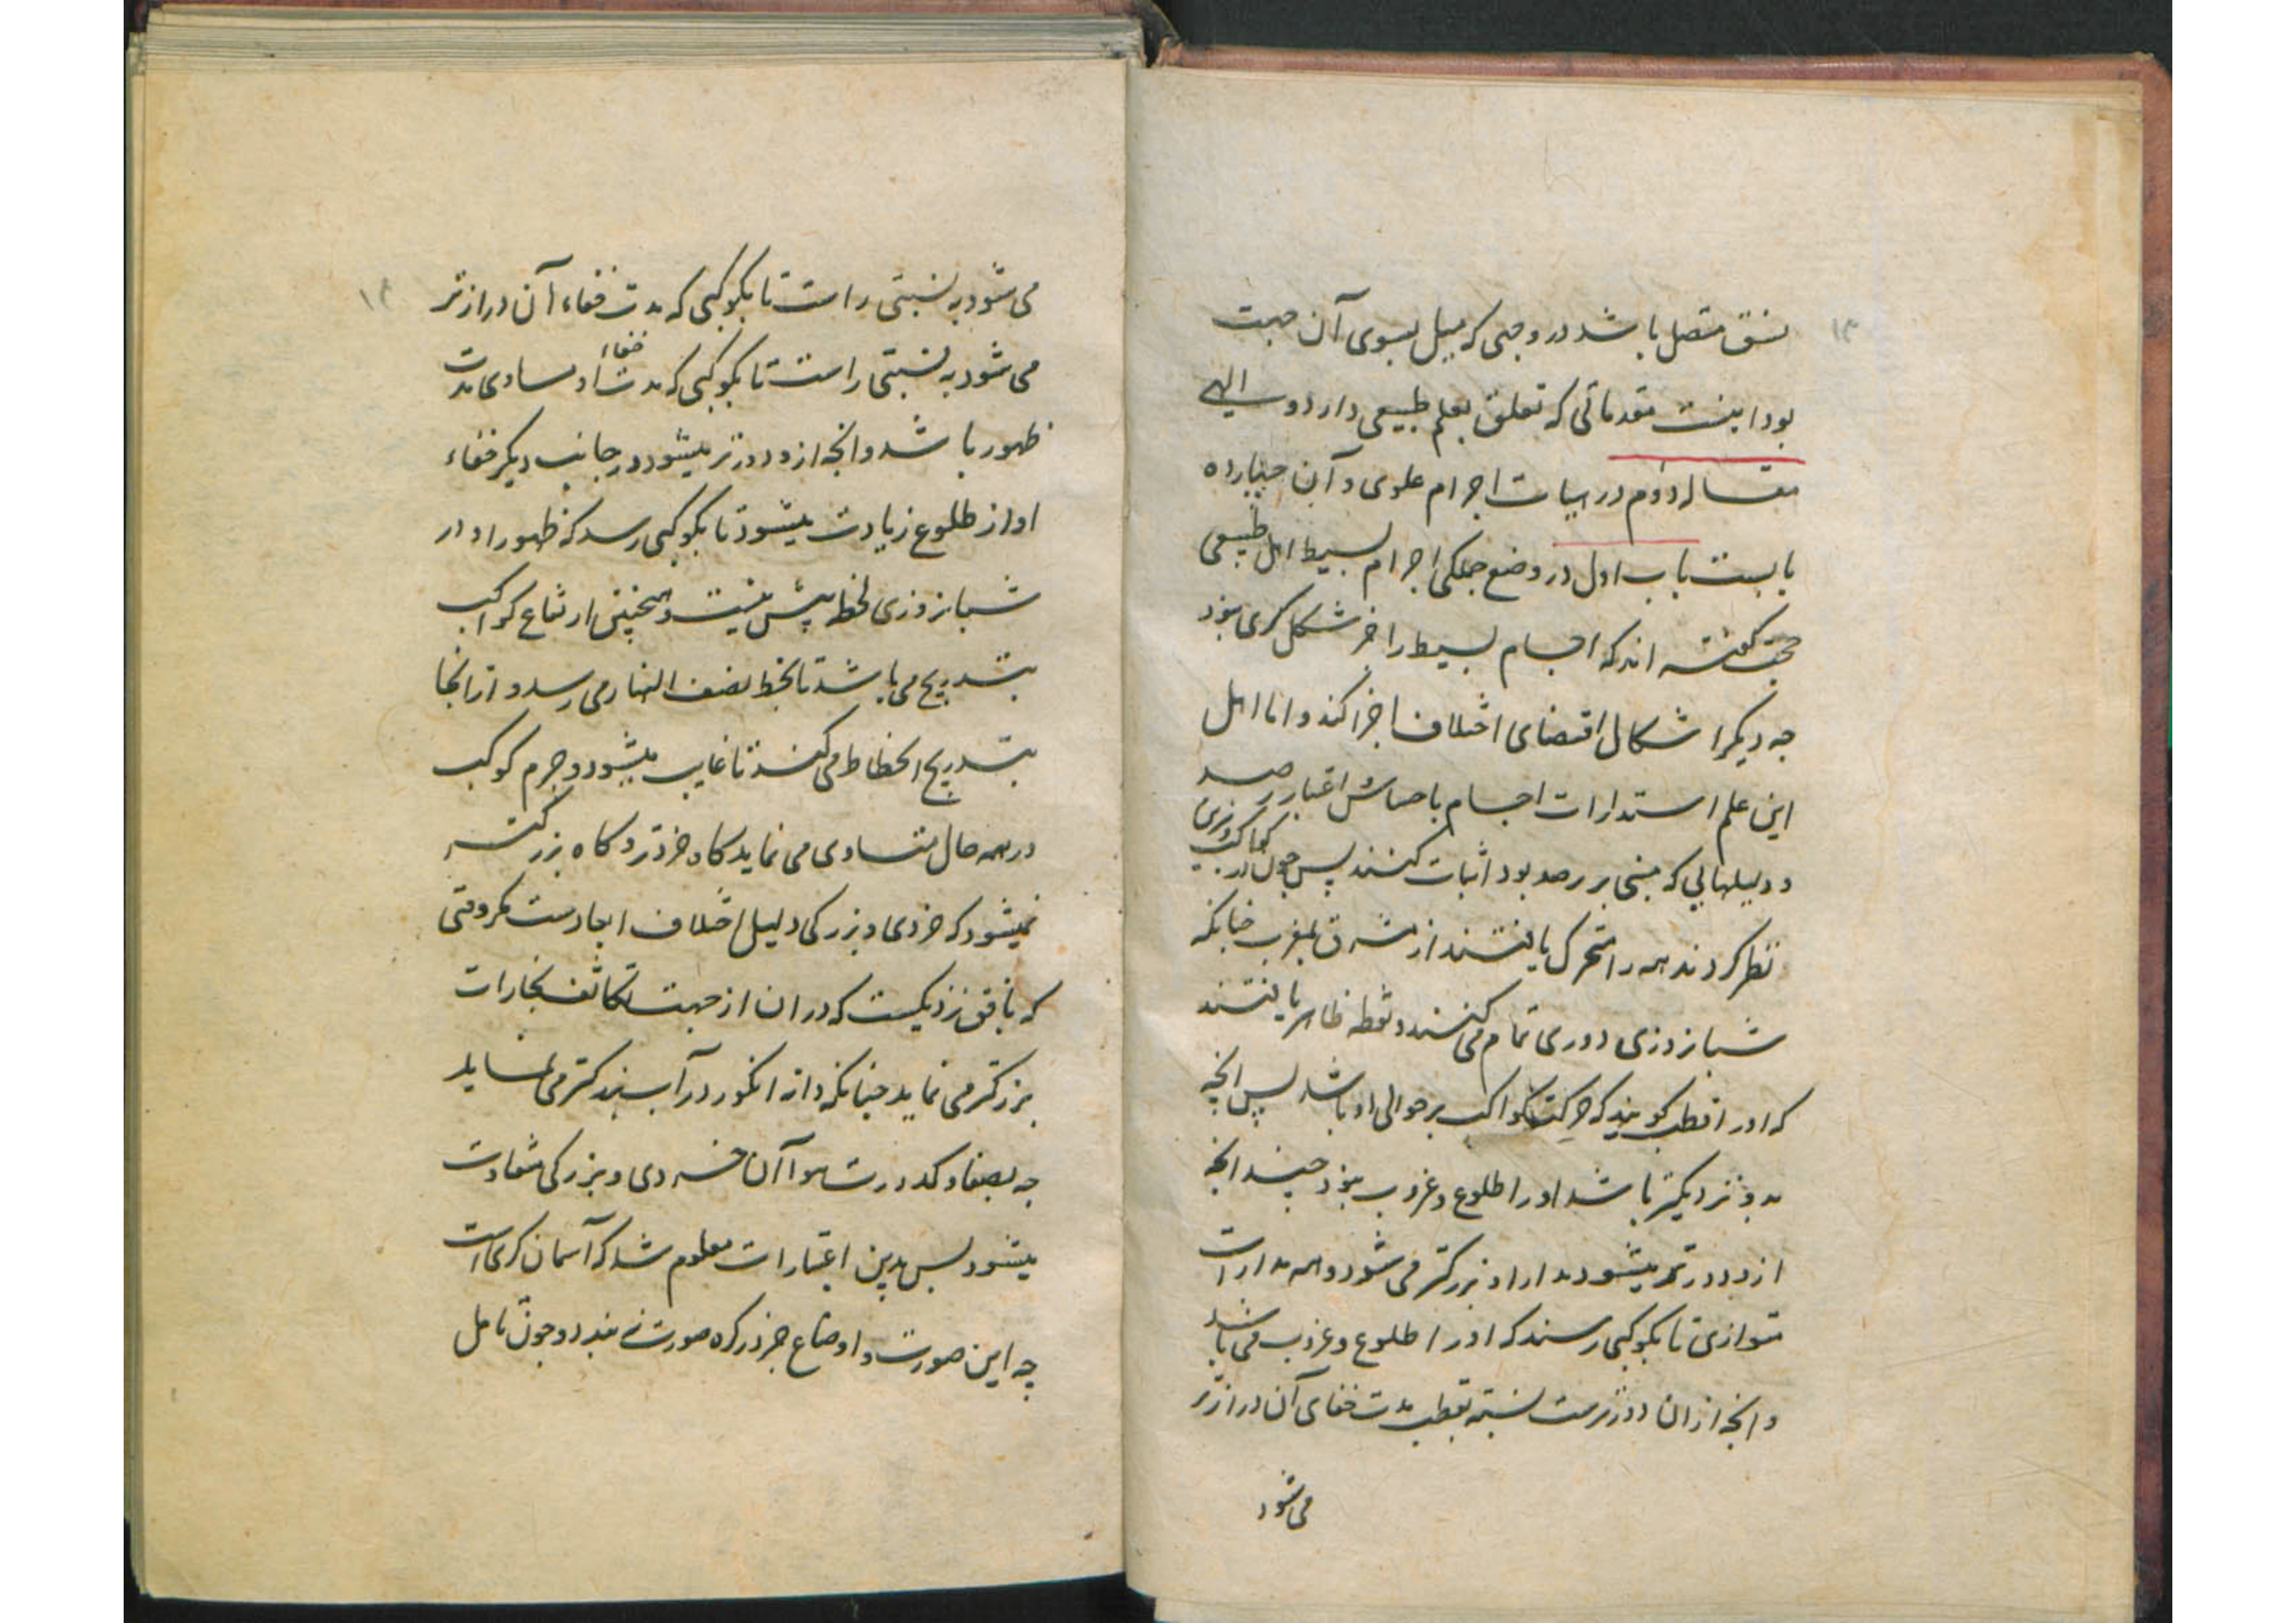 نسق متصل باشد در وجهی که میل بسوی آن جهت
بود اینست مقدماتی که تعلق بعلم طبیعی دارد و
مقاله دوم در هیات اجرام علوی و آن چهارده
بابست باب اول در وضع جملکی اجرام بسیط اهل طبیعی
گفته اند که اجسام بسیط را جز شکل کری نبود
چه دیگر اشکال اقتضای اختلاف اجزا کند و اما اهل
این علم استدارات اجسام باحساس و اعتبار رصد
و دلیلهایی که مبنی بر رصد بود اثبات کنند پس چون در کواکب
نظر کردند همه را متحرک یافتند از مشرق بمغرب چنانکه
شبانروزی دوری تمام می کنند و نقطه ظاهر یافتند
که او را قطب گویند که حرکت کواکب بر حوالی او باشد پس آنچه
بدو نزدیکتر باشد او را طلوع و غروب نبود چندانچه
ازو دورتر میشود مدار او بزرکتر می شود و همه مدارات
متوازی تا بکوکبی رسند که او را طلوع و غروب می باشد
و آنچه از ان دورترست نسبته بقطب مدت خفای آن درازتر
می شود
می شود به نسبتی راست تا بکوکبی که مدت خفاء آن درازتر
می شود به نسبتی راست تا بکوکبی که مدت خفاء او مساوی مدت
ظهور باشد و آنچه ازو دورتر میشود در جانب دیکر خفاء
او از طلوع زیادت میشود تا بکوکبی رسد که ظهور او در
شبانروزی لحظه بیش نیست و همچنین ارتفاع کواکب
بتدریج می باشد تا بخط نصف النهار می رسد و از انجا
بتدریج انحطاط می کنند تا غایب میشود و جرم کوکب
در همه حال متساوی می نماید کاه خردتر و کاه بزرکتر
نمیشود که خردی و بزرکی دلیل اختلاف ابعادست مکر وقتی
که بافق نزدیکست که در ان از جهت تکاثف بخارات
بزرکتر می نماید چنانکه دانه انکور در آب بزرکتر می نماید
چه بصفا و کدورت هوا آن خردی و بزرکی متفاوت
میشود پس بدین اعتبارات معلوم شد که آسمان کری است
چه این صورت و اوضاع جز در کره صورت نه بندد و چون تامل